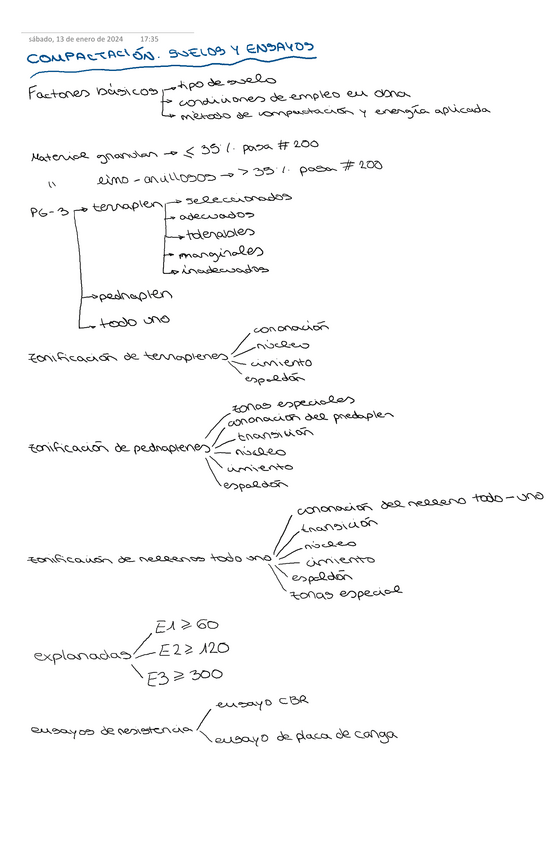 sábado, 13 de enero de 2024 17:35
COMPACTACIÓN. SUELOS Y ENSAYOS
Factores básicos → tipo de suelo
→ condiciones de empleo en obra
→ método de compactación y energía aplicada
Material granular → ≤ 35 % pasa # 200
" limo-arcillosos → > 35 % pasa # 200
PG-3 → terraplen → seleccionados
→ adecuados
→ tolerables
→ marginales
→ inadecuados
→ pedraplen
→ todo uno
zonificación de terraplenes
coronación
núcleo
cimiento
espaldón
zonificación de pedraplenes
zonas especiales
coronación del predaplen
transición
núcleo
cimiento
espaldón
zonificación de rellenos todo uno
coronación del relleno todo-uno
transición
núcleo
cimiento
espaldón
zonas especial
explanadas
E1 ≥ 60
E2 ≥ 120
E3 ≥ 300
ensayos de resistencia
ensayo CBR
ensayo de placa de carga